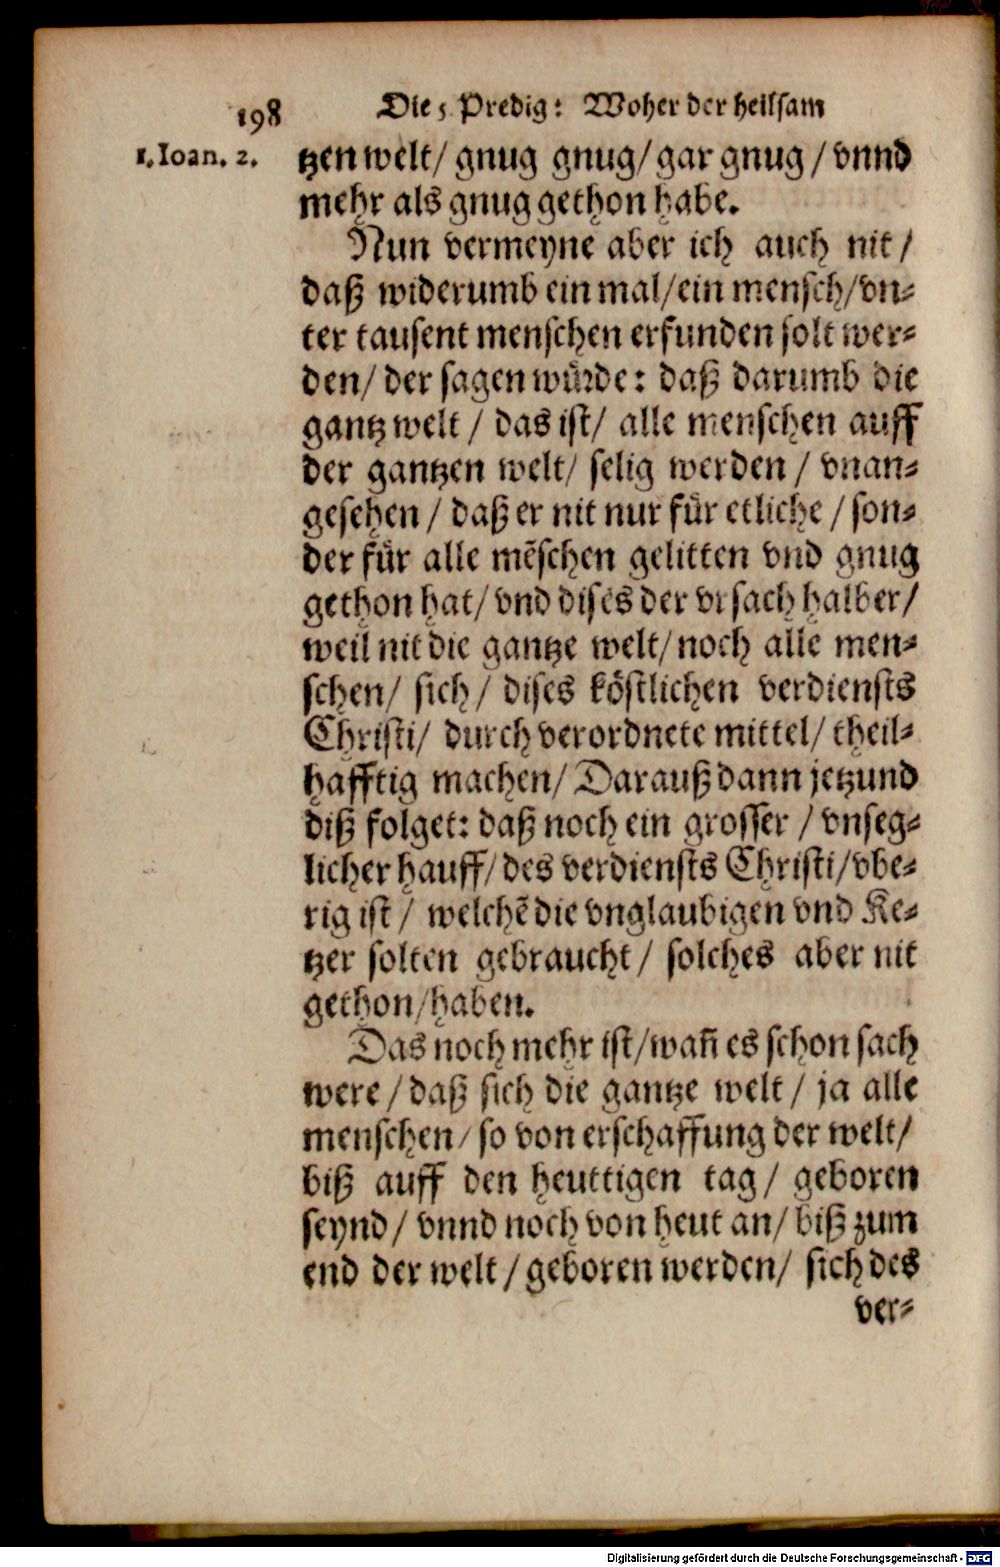 198 Die 5 Predig: Woher der heilsam
1. Ioan. 2. tzen welt/ gnug gnug/ gar gnug / vnnd
mehr als gnug gethon habe.
Nun vermeyne aber ich auch nit /
daß widerumb ein mal/ein mensch/vn-
ter tausent menschen erfunden solt wer-
den/ der sagen wuͤrde: daß darumb die
gantz welt / das ist/ alle menschen auff
der gantzen welt/ selig werden / vnan-
gesehen / daß er nit nur fuͤr etliche / son-
der fuͤr alle mẽschen gelitten vnd gnug
gethon hat/ vnd dises der vrsach halber/
weil nit die gantze welt/ noch alle men-
schen/ sich / dises koͤstlichen verdiensts
Christi/ durch verordnete mittel/ theil-
hafftig machen/ Darauß dann jetzund
diß folget: daß noch ein grosser / vnseg-
licher hauff/ des verdiensts Christi/ vbe-
rig ist / welchẽ die vnglaubigen vnd Ke-
tzer solten gebraucht / solches aber nit
gethon/haben.
Das noch mehr ist/wañ es schon sach
were / daß sich die gantze welt / ja alle
menschen/ so von erschaffung der welt/
biß auff den heuttigen tag / geboren
seynd / vnnd noch von heut an/ biß zum
end der welt / geboren werden/ sich des
ver-
Digitalisierung gefördert durch die Deutsche Forschungsgemeinschaft - DFG